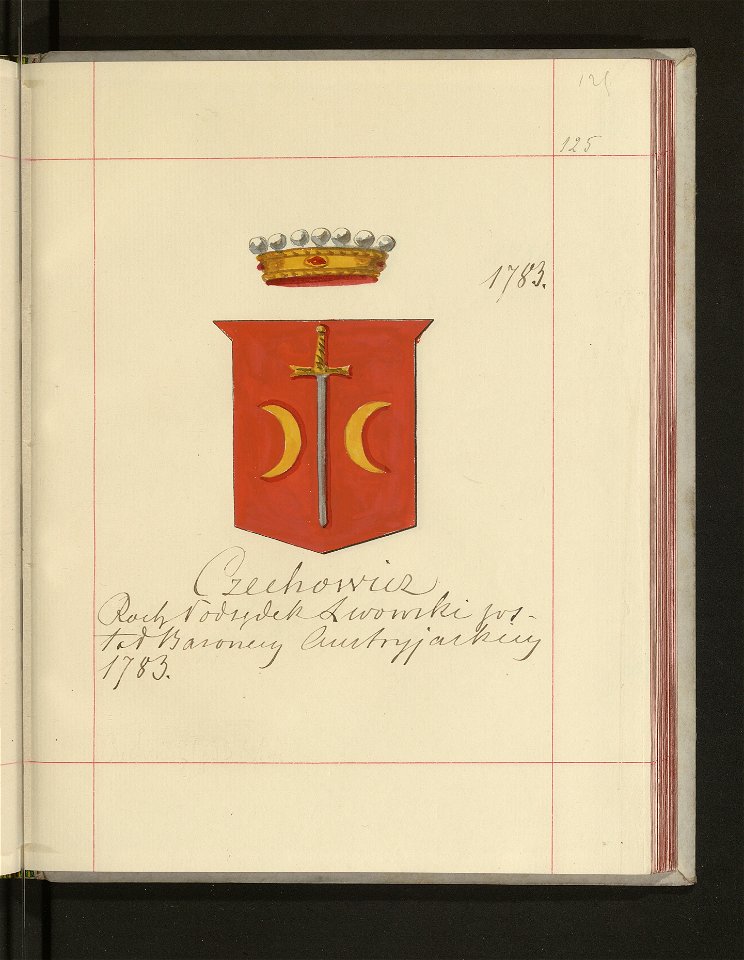 125
125
1783.
Czechowicz
Roch Podsędek Lwowski zos-
tał Baronem Austryjackim
1783.